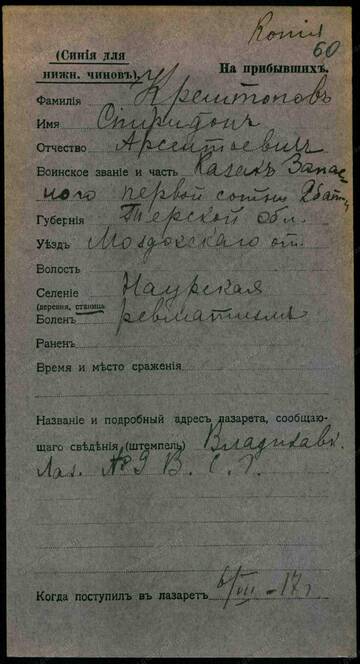 Копія
60
(Синія для
нижн. чиновъ). На прибывшихъ.
Фамилія
Имя Спиридонъ
Отчество Арсентьевичъ
Воинское званіе и часть Казакъ Запас
ного первой сотни 2 бат
Губернія Терской обл.
Уѣздъ Моздокскаго от.
Волость
Селеніе Наурская
(деревня, станица
Боленъ ревматизмъ
Раненъ
Время и мѣсто сраженія
Названіе и подробный адресъ лазарета, сообщаю-
щаго свѣдѣнія (штемпель) Владикавк.
Лаз. № 9 В. С. Г.
Когда поступилъ въ лазаретъ 6/VII - 17 г.